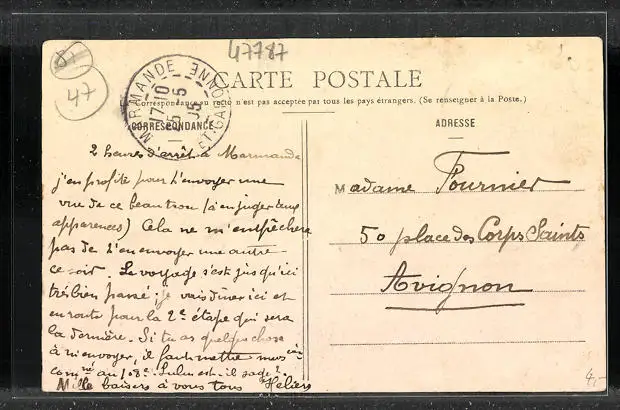 47787
47
CARTE POSTALE
(Correspondance au recto n'est pas acceptée par tous les pays étrangers. (Se renseigner à la Poste.)
MARMANDE
17 10
5 5
05
LOT-ET-GARONNE
CORRESPONDANCE
ADRESSE
2 heures d'arrêt à Marmande
j'en profite pour t'envoyer une
vue de ce beau trou (à en juger les
apparences) Cela ne m'empêchera
pas de t'en envoyer une autre
ce soir. Le voyage s'est jusqu'ici
très bien passé; je vais dîner ici et
en route pour la 2e étape qui sera
la dernière. Si tu as quelque chose
à m'envoyer, il faut mettre mus cien
com né au 108e. Lulu est-il sage?
Mille baisers à vous tous Héliers
Madame Fournier
50 place des Corps Saints
Avignon
4,-